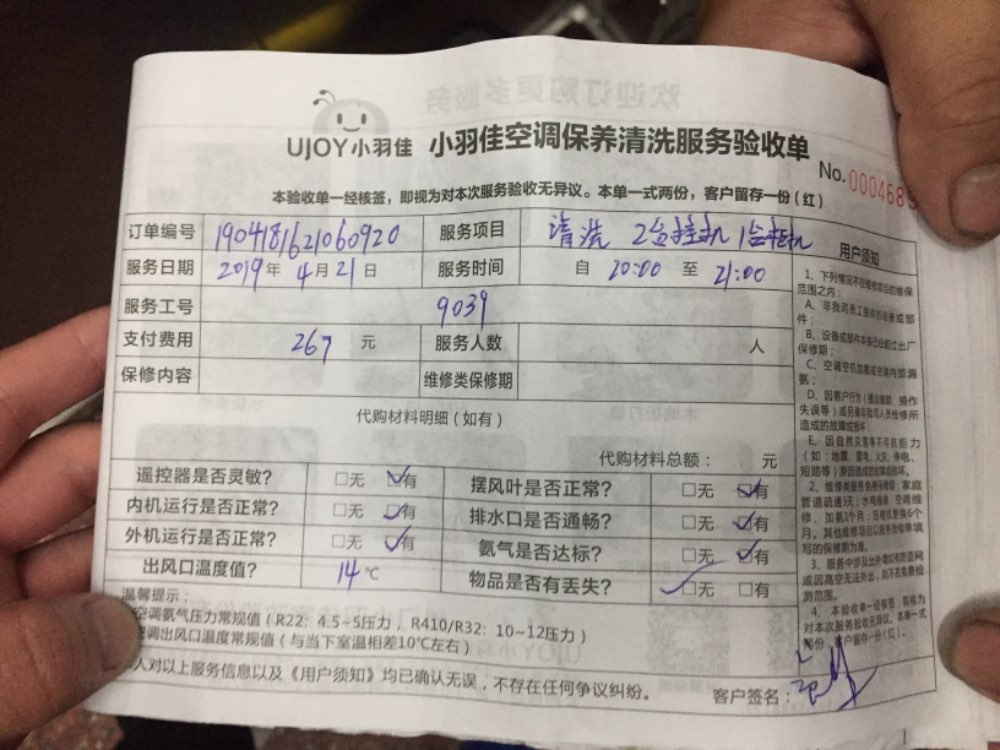 UJOY小羽佳 小羽佳空调保养清洗服务验收单
No.000468
本验收单一经核签，即视为对本次服务验收无异议。本单一式两份，客户留存一份（红）
订单编号 1904181621060920 服务项目 清洗 2台挂机 1台柜机
服务日期 2019年4月21日 服务时间 自 20:00 至 21:00
服务工号 9039
支付费用 267 元 服务人数 人
保修内容 维修类保修期
代购材料明细（如有）
代购材料总额： 元
遥控器是否灵敏？ □无 □有 摆风叶是否正常？ □无 □有
内机运行是否正常？ □无 □有 排水口是否通畅？ □无 □有
外机运行是否正常？ □无 □有 氨气是否达标？ □无 □有
出风口温度值？ 14 ℃ 物品是否有丢失？ □无 □有
温馨提示：
空调氨气压力常规值（R22：4.5~5压力，R410/R32：10~12压力）
调出风口温度常规值（与当下室温相差10℃左右）
人对以上服务信息以及《用户须知》均已确认无误，不存在任何争议纠纷。
客户签名：
用户须知
1、下列情况不在维修项目的维保
范围之内：
A、非我司员工提供的设备或部
件；
B、设备或部件本身已经超过出厂
保修期；
C、空调空机加氨或空调内部漏
氨；
D、因客户行为（擅自拆卸、操作
失误等）或另请非我司人员检修所
造成的故障或损坏；
E、因自然灾害等不可抗拒力
（如：地震、雷电、火灾、停电、
短路等）原因造成的故障或损坏。
2、维修类服务免费保修期：家庭
管道疏通1天；水电维修、空调维
修、加氨1个月；压缩机更换6个
月。其他维修项目以服务验收单填
写的保修期为准。
3、服务中涉及出外墙如有防盗网
或因高空无法外出，则不在免费检
测范围。
4、本验收单一经核签，即视为
对本次服务验收无异议。本单一式
两份，客户留存一份（红）。